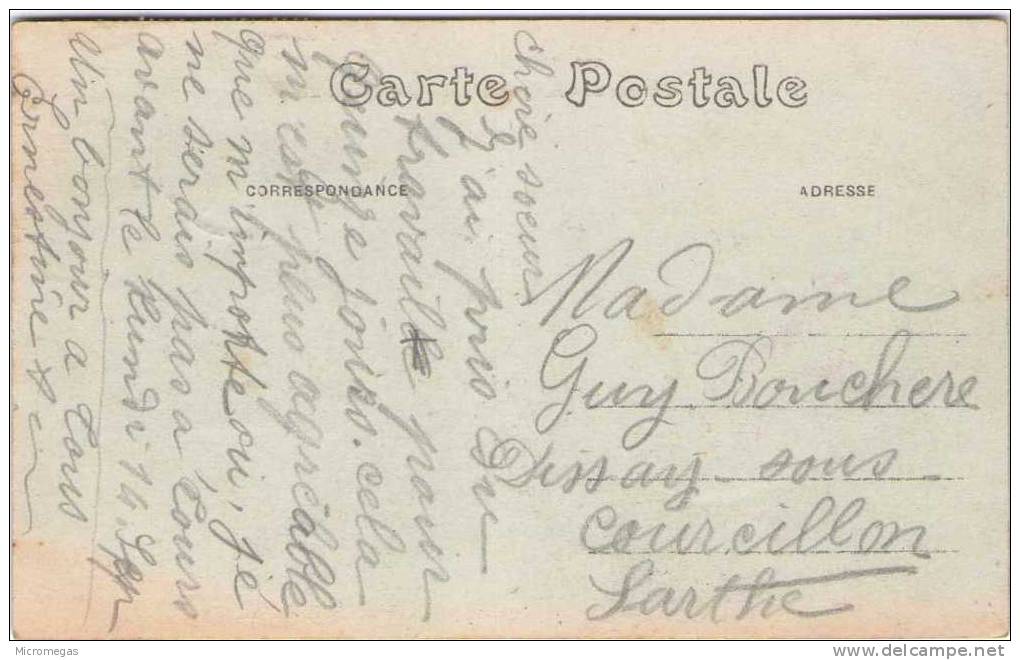 Carte Postale
CORRESPONDANCE
ADRESSE
chère soeur
J'ai pris du
travaille pour
quinze jours. cela
m'est plus agréable
que m'importe où, je
ne serais pas a Tours
avant le Lundi 14
Un bonjour a tous
Ernestine
Madame
Guy Bouchere
Dissay-sous-
Courcillon
Sarthe
Micromegas
www.delcampe.net